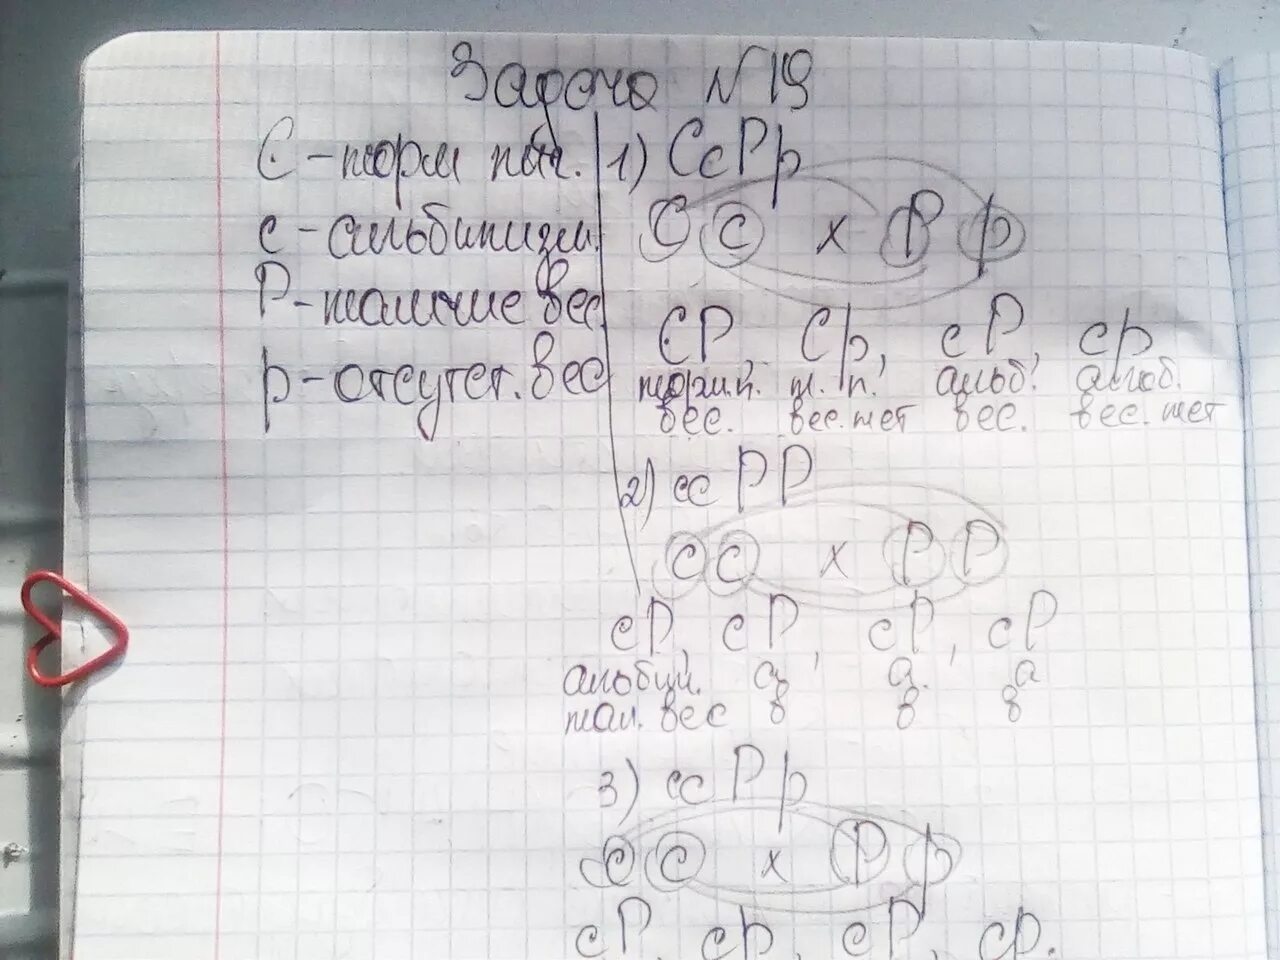 Задача №19
С - норм пиг.
с - альбинизм.
Р - наличие вес
р - отсутст. вес
1) СсРр
С с х Р р
СР, Ср, сР, ср
норм.п. н. п. альб. альб.
вес. вес. нет вес. вес. нет
2) сс РР
с с х Р Р
сР, сР, сР, сР
альбин. а а. а
нал. вес в в в
3) сс Рр
с с х Р р
сР, ср, сР, ср.